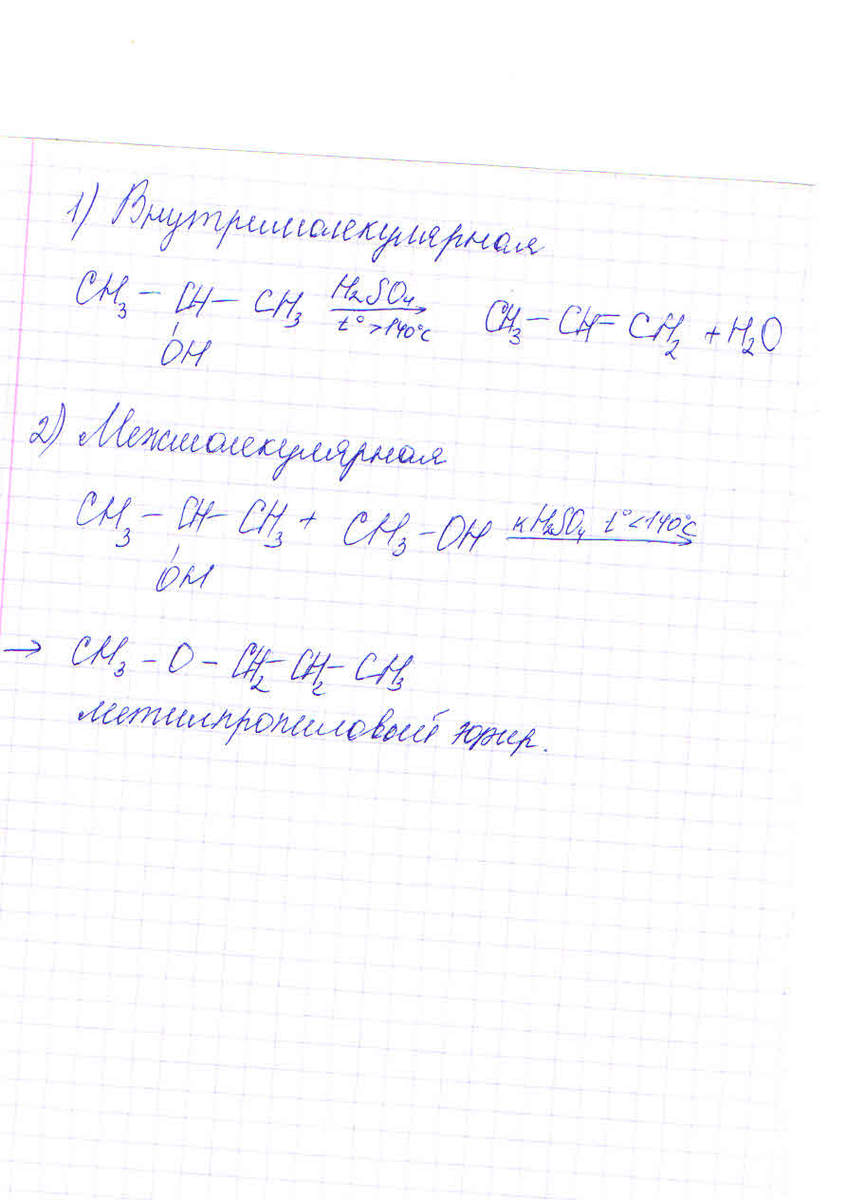 1) Внутримолекулярная
CH₃ – CH – CH₃ H₂SO₄ t° >140°C CH₃ – CH = CH₂ + H₂O
OH
2) Межмолекулярная
CH₃ – CH – CH₃ + CH₃ – OH кH₂SO₄ t° <140°C →
OH
→ CH₃ – O – CH₂ – CH₂ – CH₃
метилпропиловый эфир.